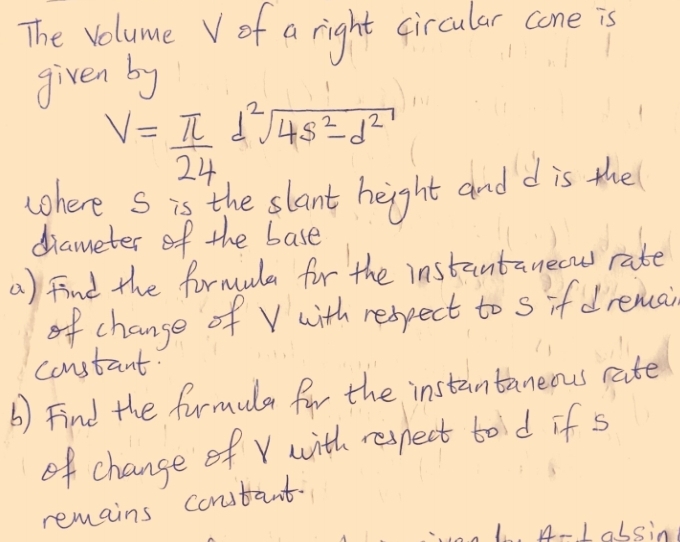 The Volume V of a right circular cone is
given by
V = π/24 d²√4s²-d²
where s is the slant height and d is the
diameter of the base
a) Find the formula for the instantaneous rate
of change of V with respect to s if d remain
constant.
b) Find the formula for the instantaneous rate
of change of V with respect to d if s
remains constant.